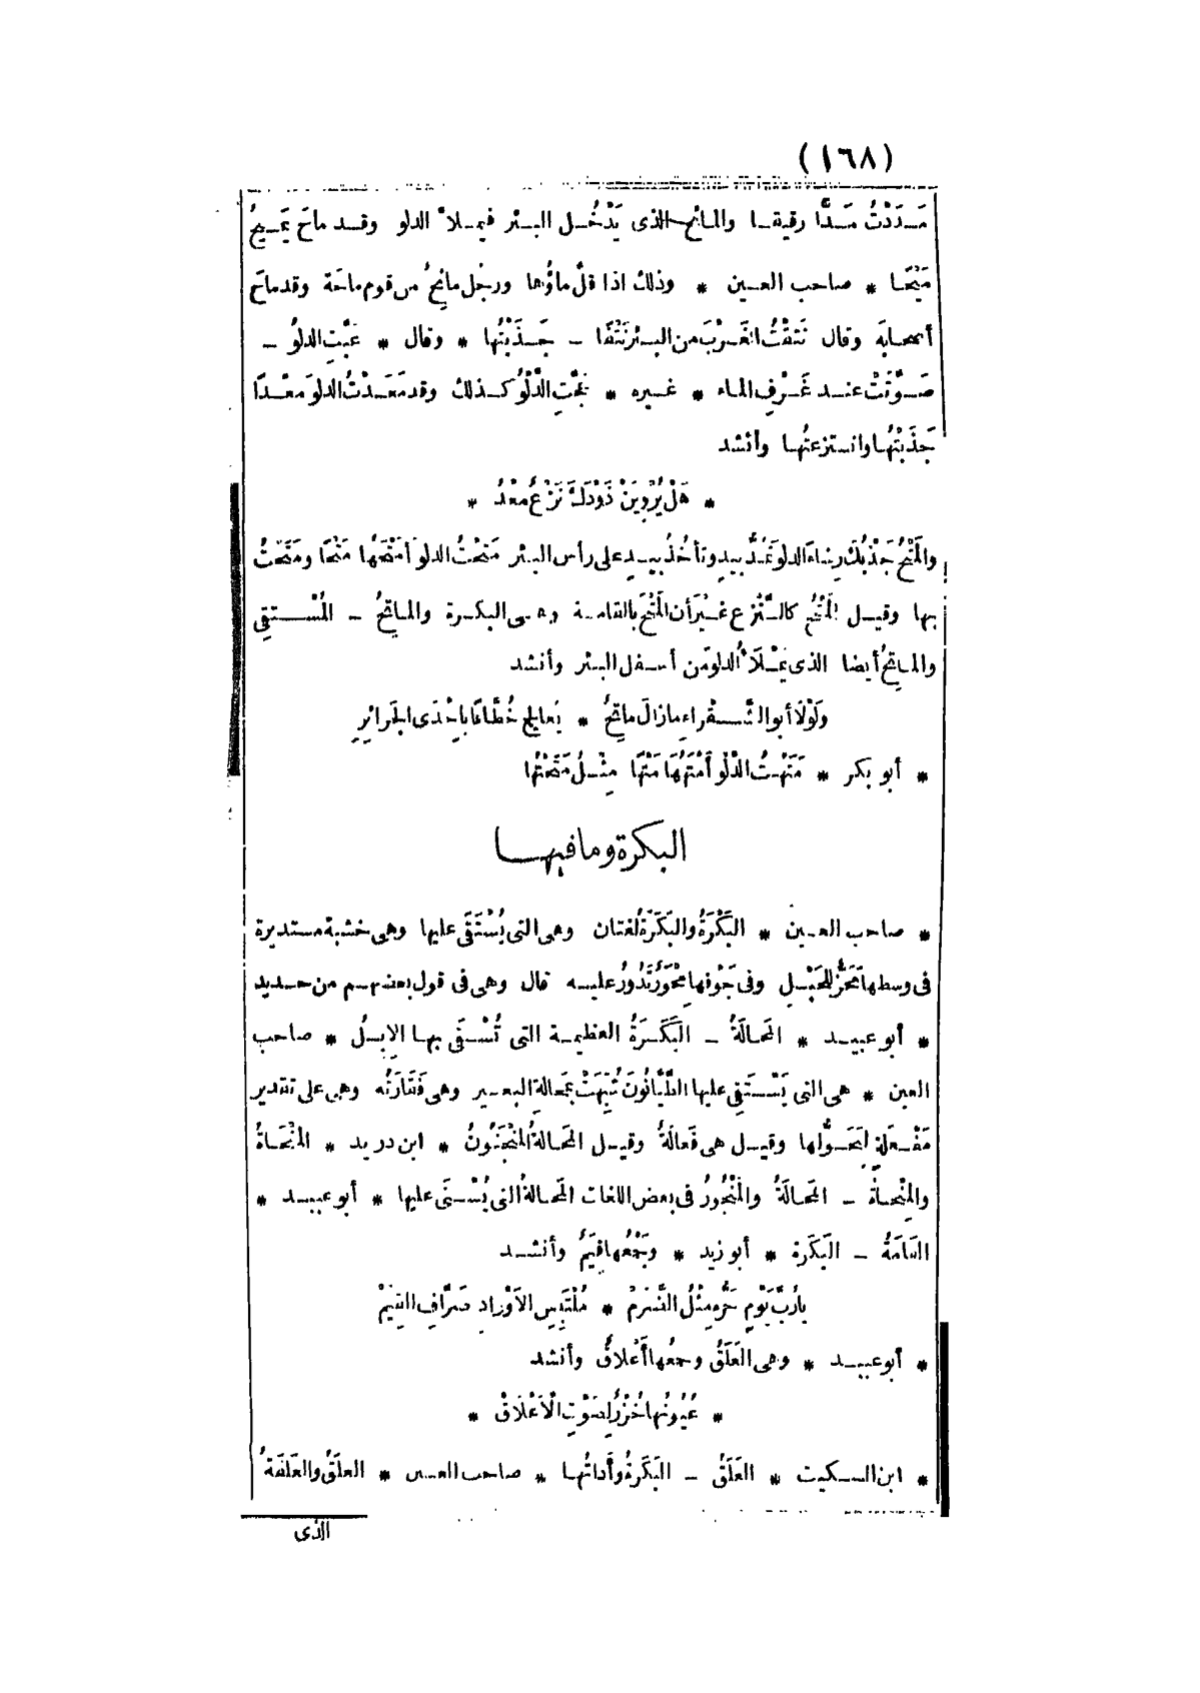 (١٦٨)
مَدَدْتُ مَدًّا رقيقا والمائح الذى يَدْخُل البئر فيملأ الدلو وقد ماحَ يَمِيحُ
مَيْحًا * صاحب العين * وذلك اذا قلَّ ماؤُها ورجُل مائِحٌ من قوم ماحَة وقد ماحَ
أصحابَه وقال نَتَقْتُ الغَرْبَ من البئر نَتْقًا - جَذَبْتُها * وقال * غَبَّتِ الدلوُ -
صَوَّتَتْ عند غَرْفِ الماء * غيره * نَجَّتِ الدَّلْوُ كذلك وقد مَعَدْتُ الدلوَ مَعْدًا
جَذَبْتُها وانتزعتُها وأنشد
* هَلْ يُرْوِيَنْ ذَوْدَكَ نَزْعٌ مَعْدُ *
والمَتْحُ جَذْبُكَ رِشاءَ الدلو تَمُدُّ بيدٍ وتأخُذُ بيدٍ على رأس البئر مَتَحْتُ الدلوَ أمْتَحُها مَتْحًا ومَتَحْتُ
بها وقيل المَتْحُ كالنَّزْع غَيْرَ أن المَتْحَ بالقامة وهى البكرة والماتِحُ - المُسْتقِى
والماتِحُ أيضا الذى يَمْلَأُ الدلو من أسفل البئر وأنشد
وَلَوْلَا أبو الشَّقْراءِ ما زالَ ماتِحٌ * يُعالِج خُطَّافًا بإحْدَى الجَرائِرِ
* أبو بكر * مَتَهْتُ الدَّلْو أَمْتَهُهَا مَتْهًا مِثْلُ مَتَحْتُها
البكرة وما فيها
* صاحب العين * البَكْرَةُ والبَكَرَة لُغتان وهى التى يُسْتَقَى عليها وهى خشبة مستديرة
فى وسطها مَحَزٌّ للحَبْل وفى جَوْفها مِحْوَرٌ تَدُورُ عليه قال وهى فى قول بعضهم من حديد
* أبو عبيد * المَحالَةُ - البَكَرَةُ العظيمة التى تُسْقَى بها الإبِلُ * صاحب
العين * هى التى يَسْتَقِى عليها الطَّيَّانُونَ شُبِّهَتْ بمَحالةِ البعير وهى فَقَارَتُه وهى على تقدير
مَفْعَلةٍ لتَحَوُّلها وقيل هى فَعالَةٌ وقيل المَحالةُ المَنْجَنُونُ * ابن دريد * المَنْحَاةُ
والمِنْحاةُ - المَحالَةُ والمَنْجُورُ فى بعض اللغات المَحالةُ التى يُسْنَى عليها * أبو عبيد *
القَامَةُ - البَكَرَة * أبو زيد * وجَمْعُها قِيَمٌ وأنشد
يا رُبَّ يَوْمٍ حَرُّه مِثْلُ الضَّرَمْ * مُلْتَبِسِ الأَوْرادِ صَرَّافِ القِيَمْ
* أبو عبيد * وهى العَلَقُ وجمعُها أَعْلاقٌ وأنشد
* عُيُونُها خُزْرٌ لِصَوْتِ الْأَعْلَاقْ *
* ابن السكيت * العَلَقُ - البَكَرةُ وأَداتُها * صاحب العين * العَلَقُ والعَلَقَةُ
الذى